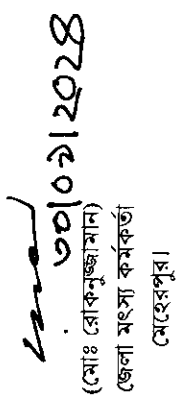 ৩০|০৯|২০২৪
(মোঃ রোকনুজ্জামান)
জেলা মৎস্য কর্মকর্তা
মেহেরপুর।